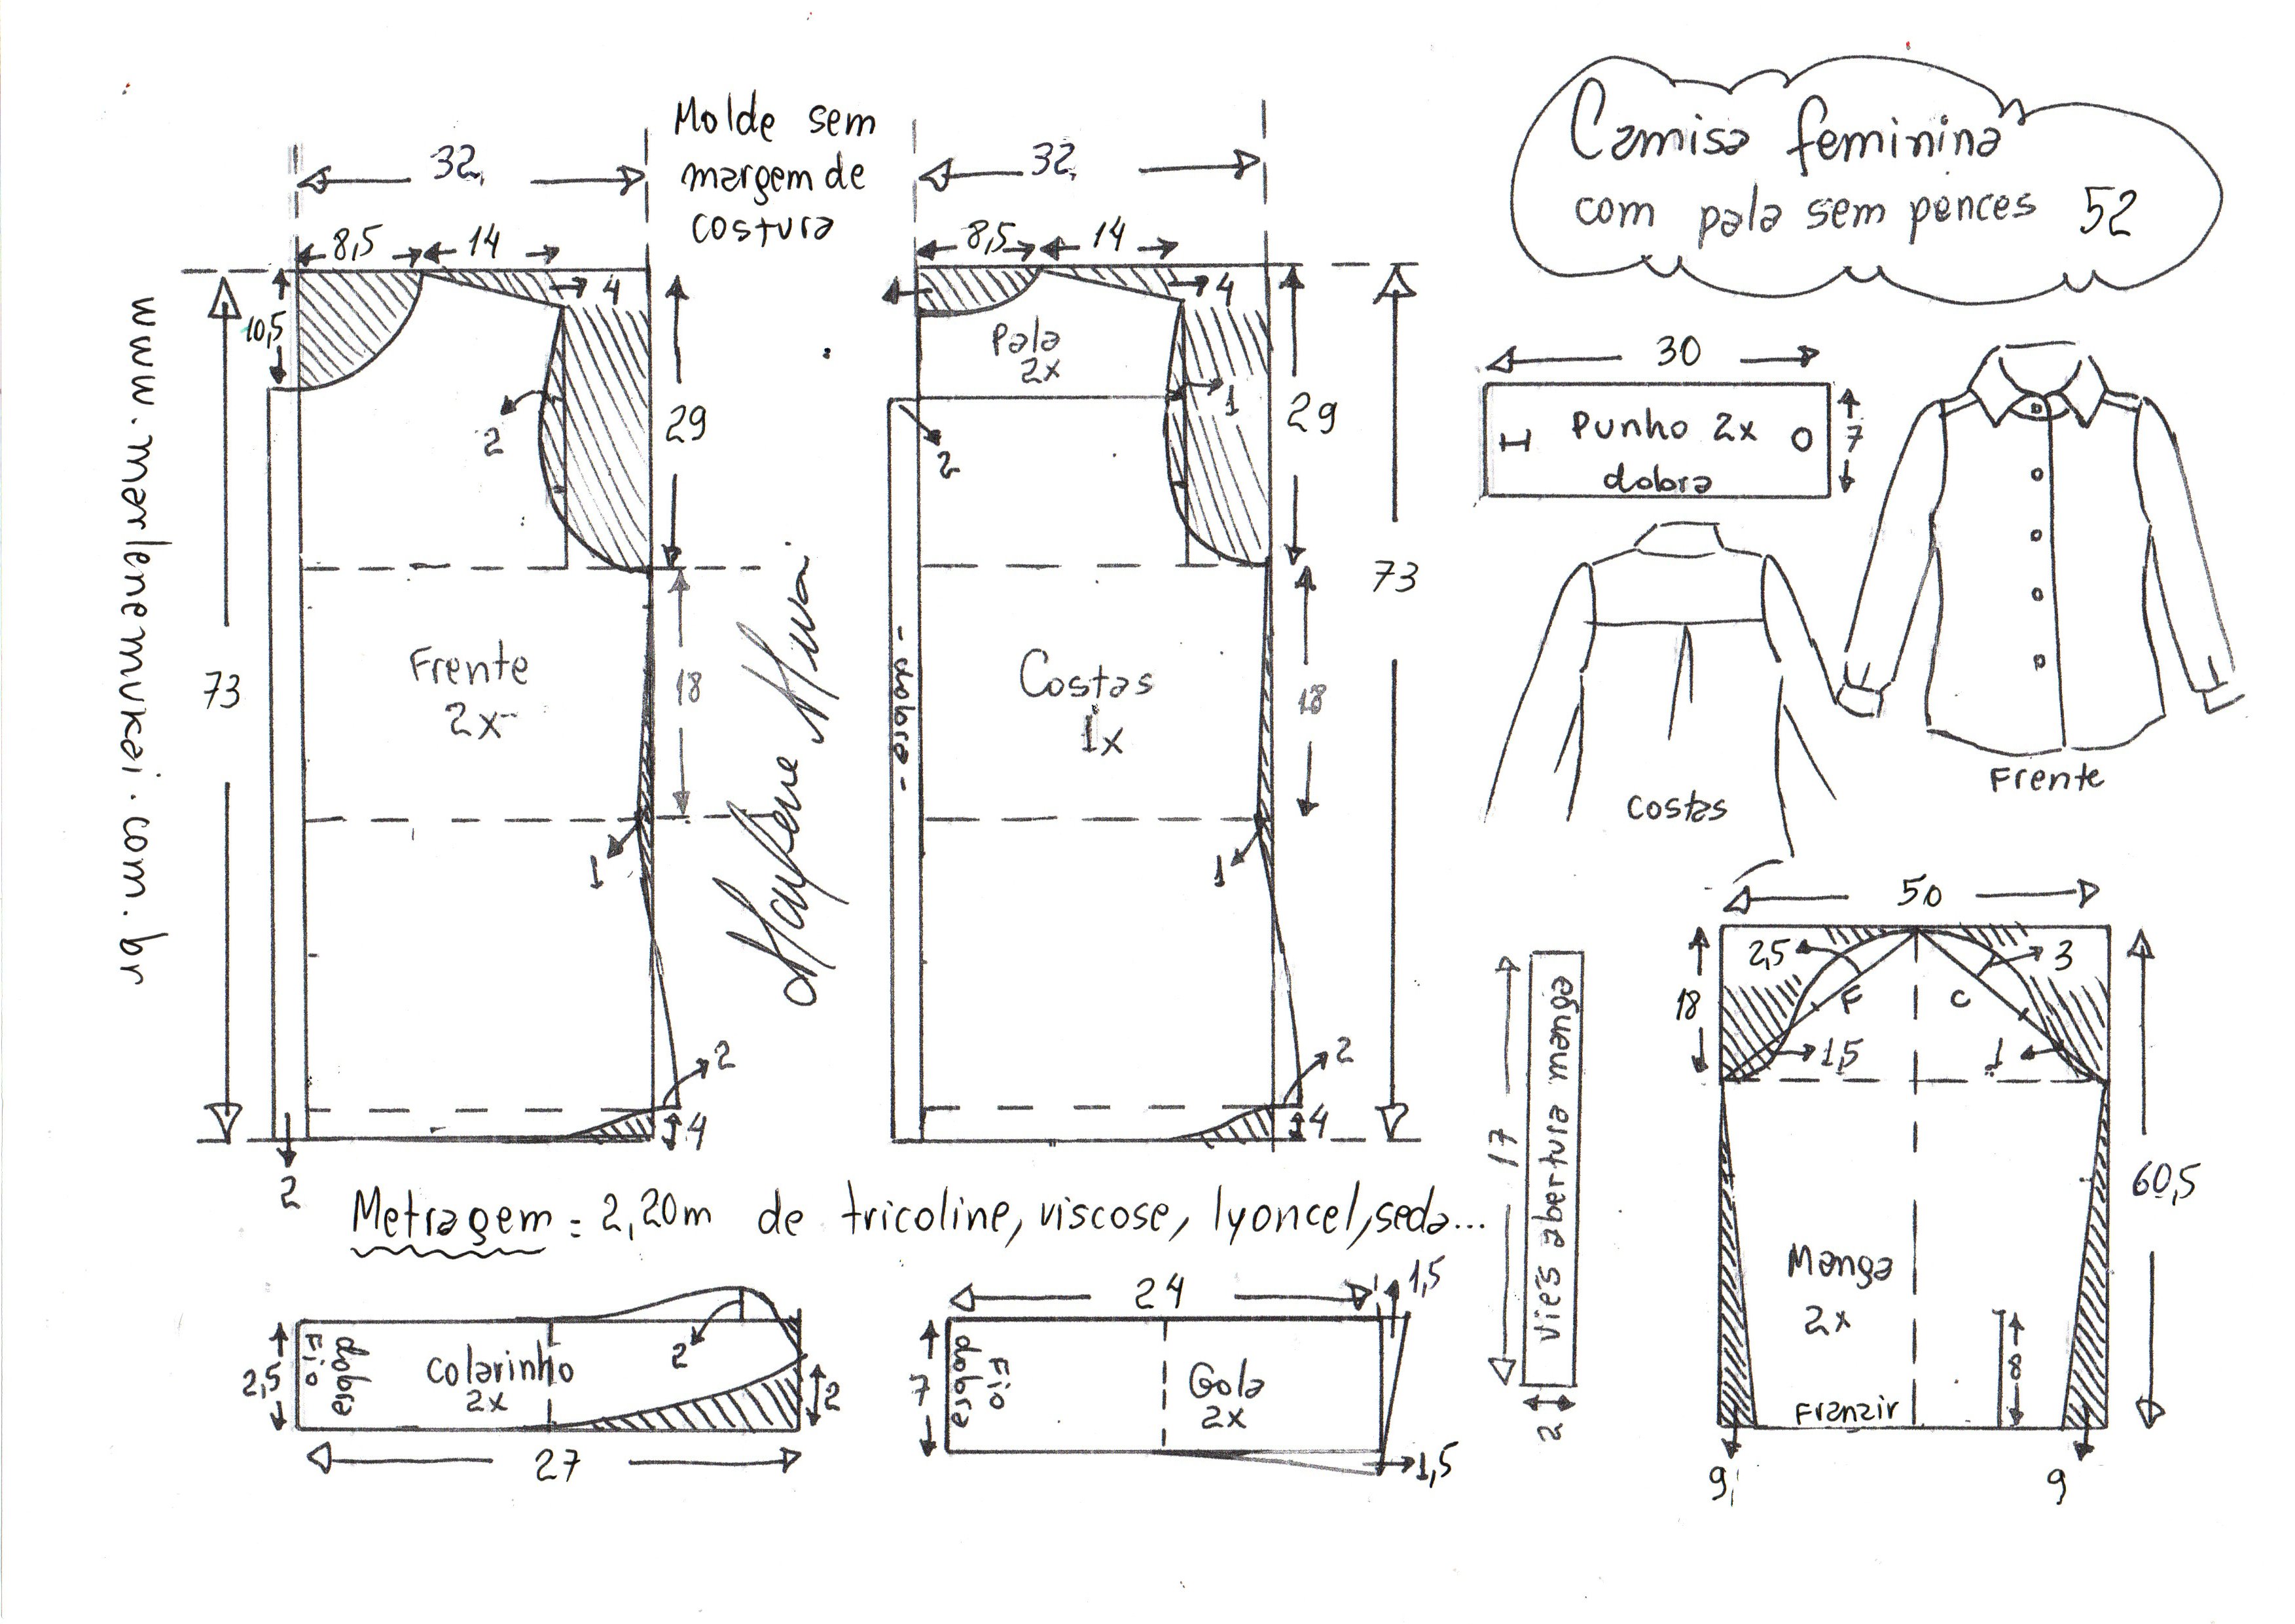 Molde sem
margem de
costura
Camisa feminina
com pala sem pences 52
www.marlenemukai.com.br
32,
8,5
14
4
10,5
2
29
73
Frente
2x
18
1
2
4
2
Marlene Mukai
32,
8,5
14
4
Pala
2x
1
2
29
73
- dobra -
Costas
1x
18
1
2
4
30
Punho 2x
dobra
7
Costas
Frente
50
2,5
3
18
F
C
1,5
1
60,5
Manga
2x
8
Franzir
9,
9
17
viés abertura manga
2
Metragem = 2,20m de tricoline, viscose, lyoncel, seda...
2,5
Fio
dobra
Colarinho
2x
2
2
27
24
1,5
7
dobra
Fio
Gola
2x
1,5